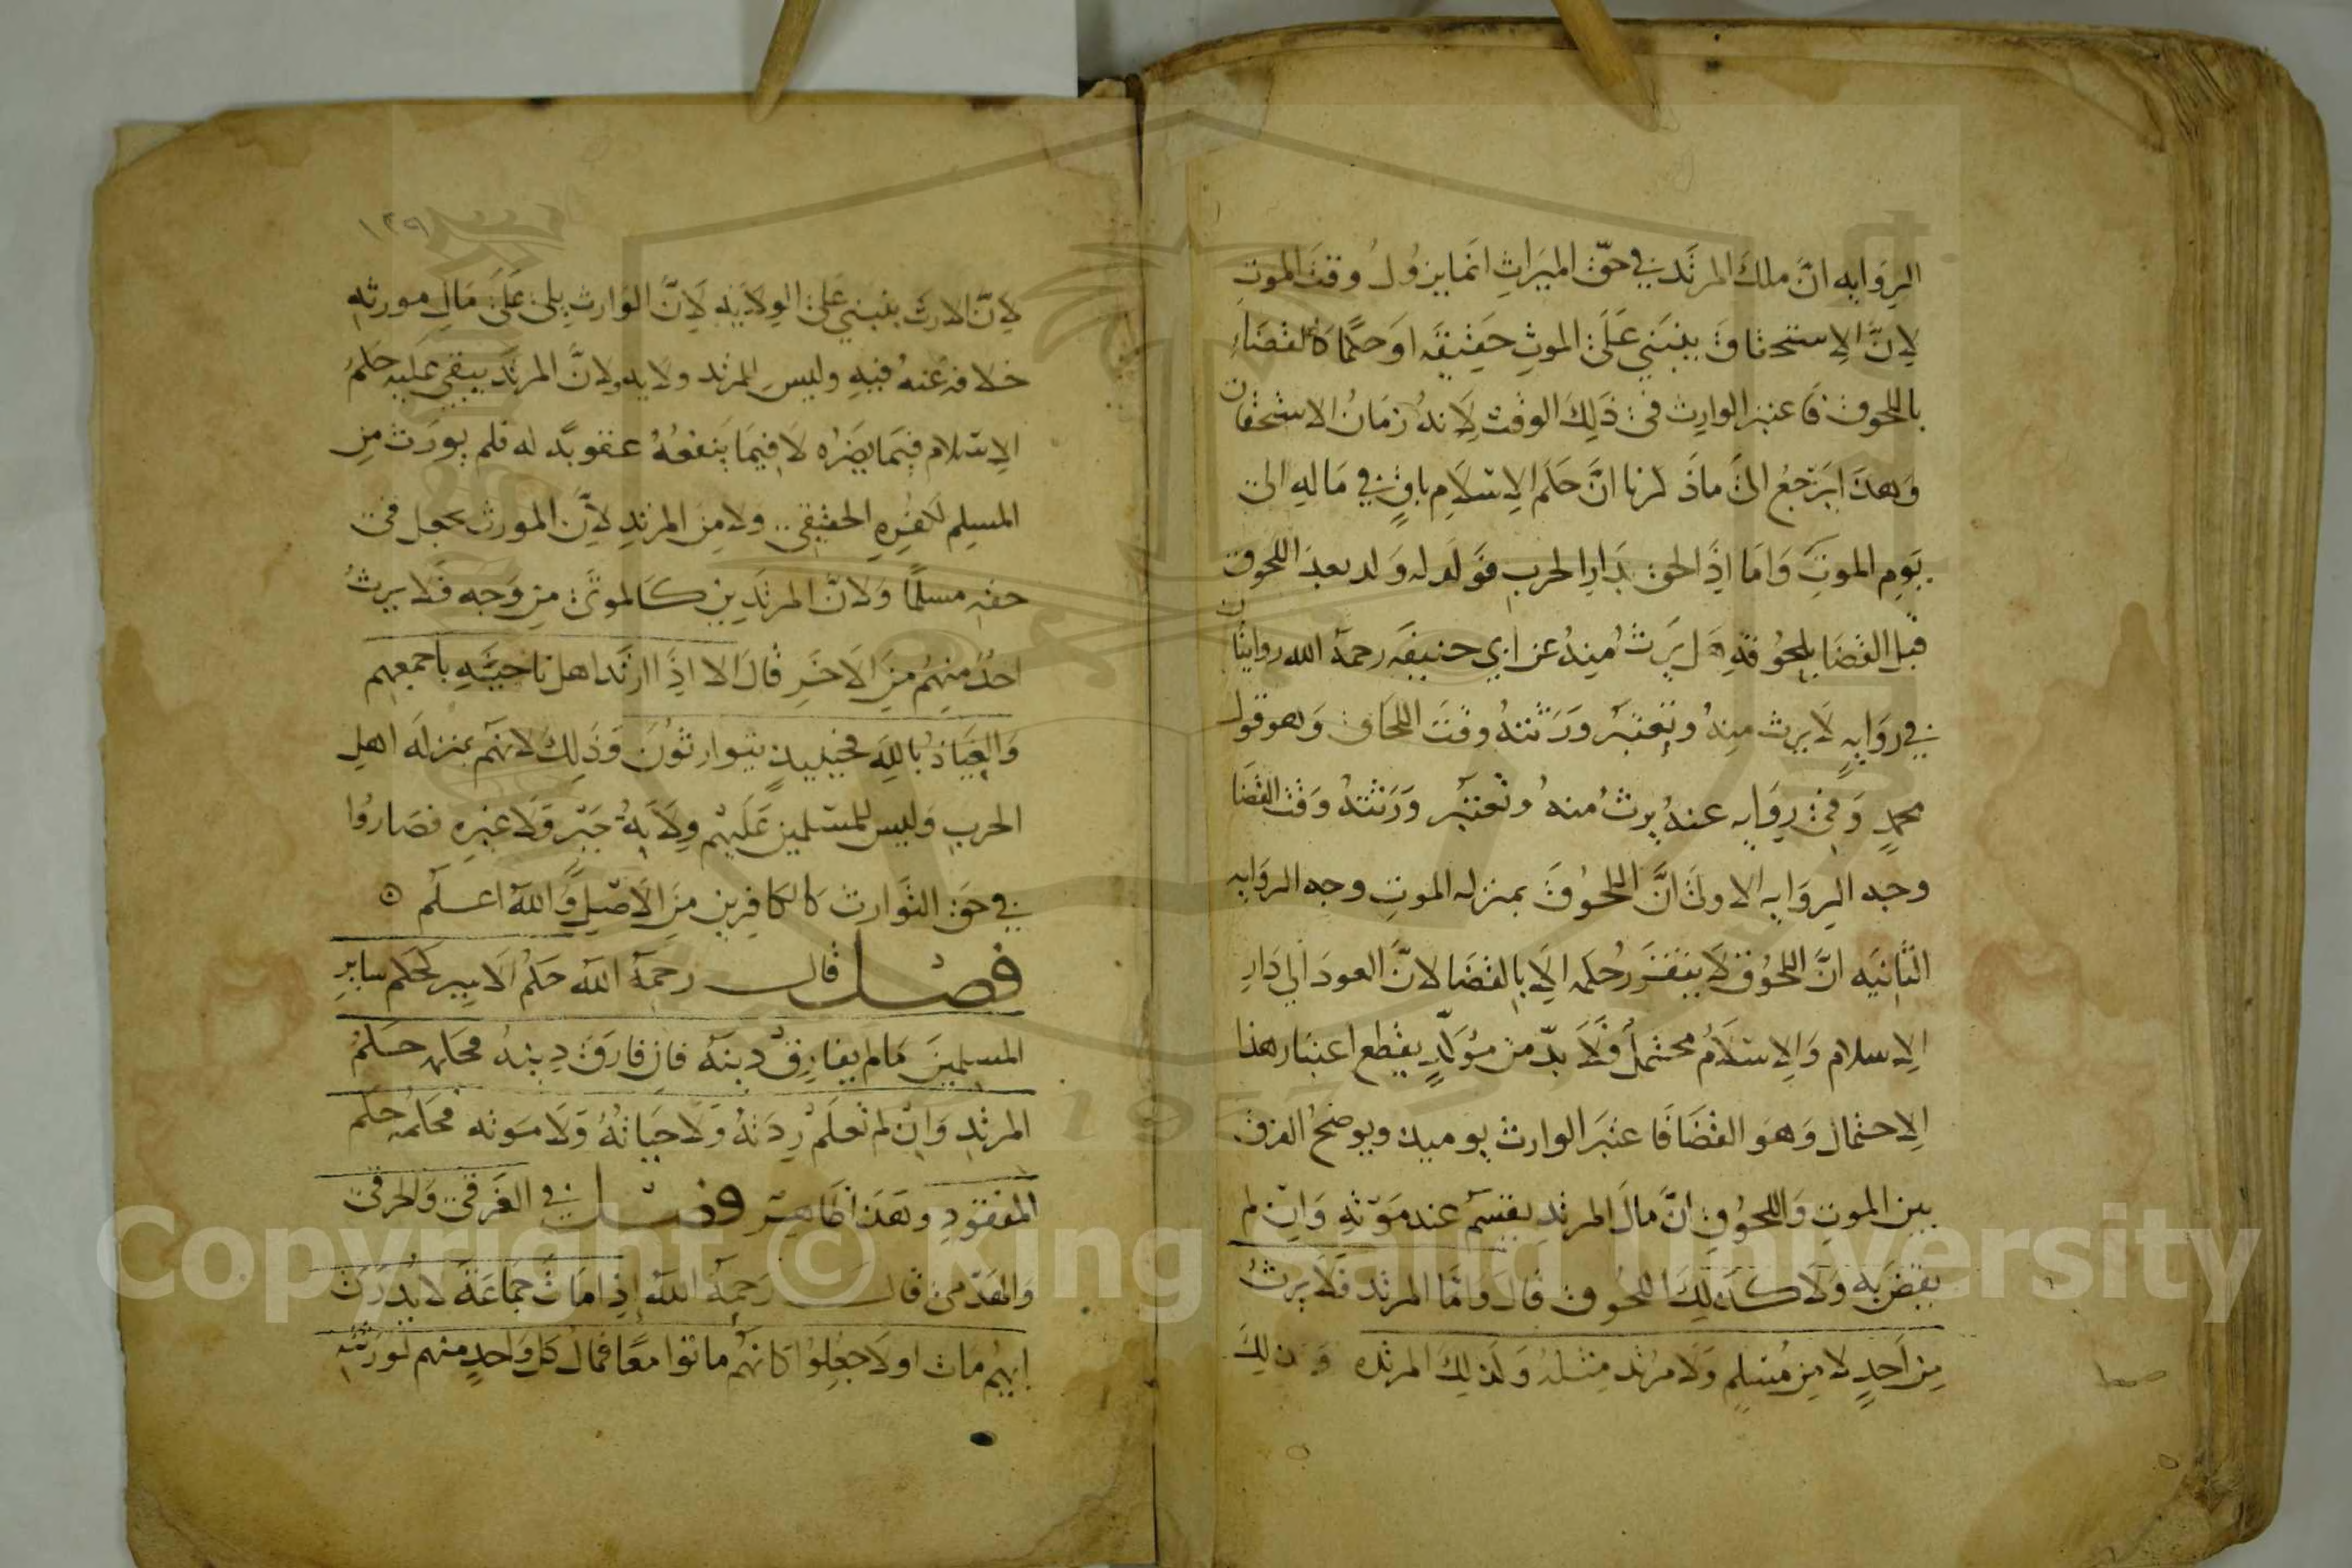 الرِوَايه انَّ ملكَ المرتَد في حقّ الميرَاثِ انما يزوُلُ وقتَ الموتِ
لِانَّ الاِستحقاقَ ينبَني عَلَى الموتِ حَقيقَه اوَ حكمًا كالقضَاءِ
باللحوق فَاعتبر الوارِث في ذَلِكَ الوقت لِانهُ زمَانُ الاستحقاق
وَهذَا يَرجعُ الىَ ماذَكرنا انَّ حكَم الاِسْلاَمِ باقٍ في مَالهِ الى
يَومِ الموتِ وَامَا اِذَا لحق بدَارِ الحربِ فوَلدَ له وَلد بعدَ اللحوق
قبل القضَا بلحوُقهِ هَل يَرثُ مِنهُ عن ابي حنيفَه رحمهُ الله روايتان
في روَايهٍ لاَ يرث مِنهُ وتعتبَر وَرَثتهُ وقتَ اللحَاق وَهو قول
محمدٍ وَفي رِوَايه عنهُ يرثُ منهُ وتعتبَر وَرَثتهُ وَقتَ القضَا
وجه الرِوَايه الاولىَ انَّ اللحوُقَ بمنزله الموتِ وجه الروَايه
الثانيَه انَّ اللحوُق لاَ يتقرَر حُكمه اِلاَ بالقضَا لانَّ العودَ الي دَارِ
الاِسلام وَالاِسْلاَمُ محتملٌ فَلاَ بدّ من مؤَكّدٍ يقطع اعتبار هذا
الاِحتمال وَهوَ القضَا فَاعتبَر الوارث يوميذ ويوضحُ الفرق
بين الموتِ وَاللحوُقِ انَّ مالَ المرتدِ يقسم عند مَوْتهِ وَان لم
يقضَ به وَلاَ كذَلِكَ اللحُوق قالَ وامَّا المرتَد فَلاَ يرثُ
مِن اَحدٍ لا مِن مُسْلمٍ وَلا مرُتد مِثلهُ وَكذلِكَ المرتده وذلكَ
١٣٩
لاِنّ الارثَ ينبَني عَلىَ الوِلاَيَهِ لاَنَّ الوَارثِ يلى عَلىَ مَالِ مورثهِ
خلافه عَنهُ فيهِ وليسِ للمرتد ولايه ولانَّ المرتدَ يبقى عَليهِ حكمُ
الاِسْلام فيمَا يضرُه لاَ فِيمَا ينفعُهُ عقوبَه له فلم يورَث مِن
المسلِم لكفرِهِ الحقيقي ولا مِنَ المرتدِ لاَنَّ المورث يجعل في
حقهِ مسلمًا وَلانَّ المرتدَين كَالموتىَ مِن وَجه فَلا يرثُ
احدٌ منِهُم مِنَ الاخَرِ قالَ الا اِذَا ارتَد اهل ناحيَتهِ باجمعهم
وَالعِيَاذُ بالله فحينيذٍ يتوارثوُنَ وَذَلِكَ لانهم بمنزلَه اهلِ
الحربِ وَليس للمسْلمين عَليهْم وِلاَيهُ جَبْر وَلاَ غيره فصَاروُا
في حق التوارث كالكافِرين مِنَ الاَصْلِ وَاللهُ اعلَم ه
فصل قال رَحِمهُ اللهُ حكمُ الاسِير كحكم سايرِ
المسلِمينَ مَالم يفارِقْ دينهُ فاِن فارَقَ دِينهُ فحكمه حكمُ
المرتدِ وَان لم تعلَمْ رِدَتهُ وَلاَ حيَاتهُ وَلاَ مَوته فحكمهُ حكم
المفقودِ وهذَا ظاهِر فصل في الغَرقى وَالحرقى
وَالهدْمى قالَ رَحِمهُ اللهُ إذِا مَاتَ جَمَاعَة لا يدُرَى
ايهُم مَات اولاَ جعِلوُا كانهُم ماتوا معًا فمالُ كل وَاحدٍ منهم لوَرَثتهِ
Copyright © King Saud University